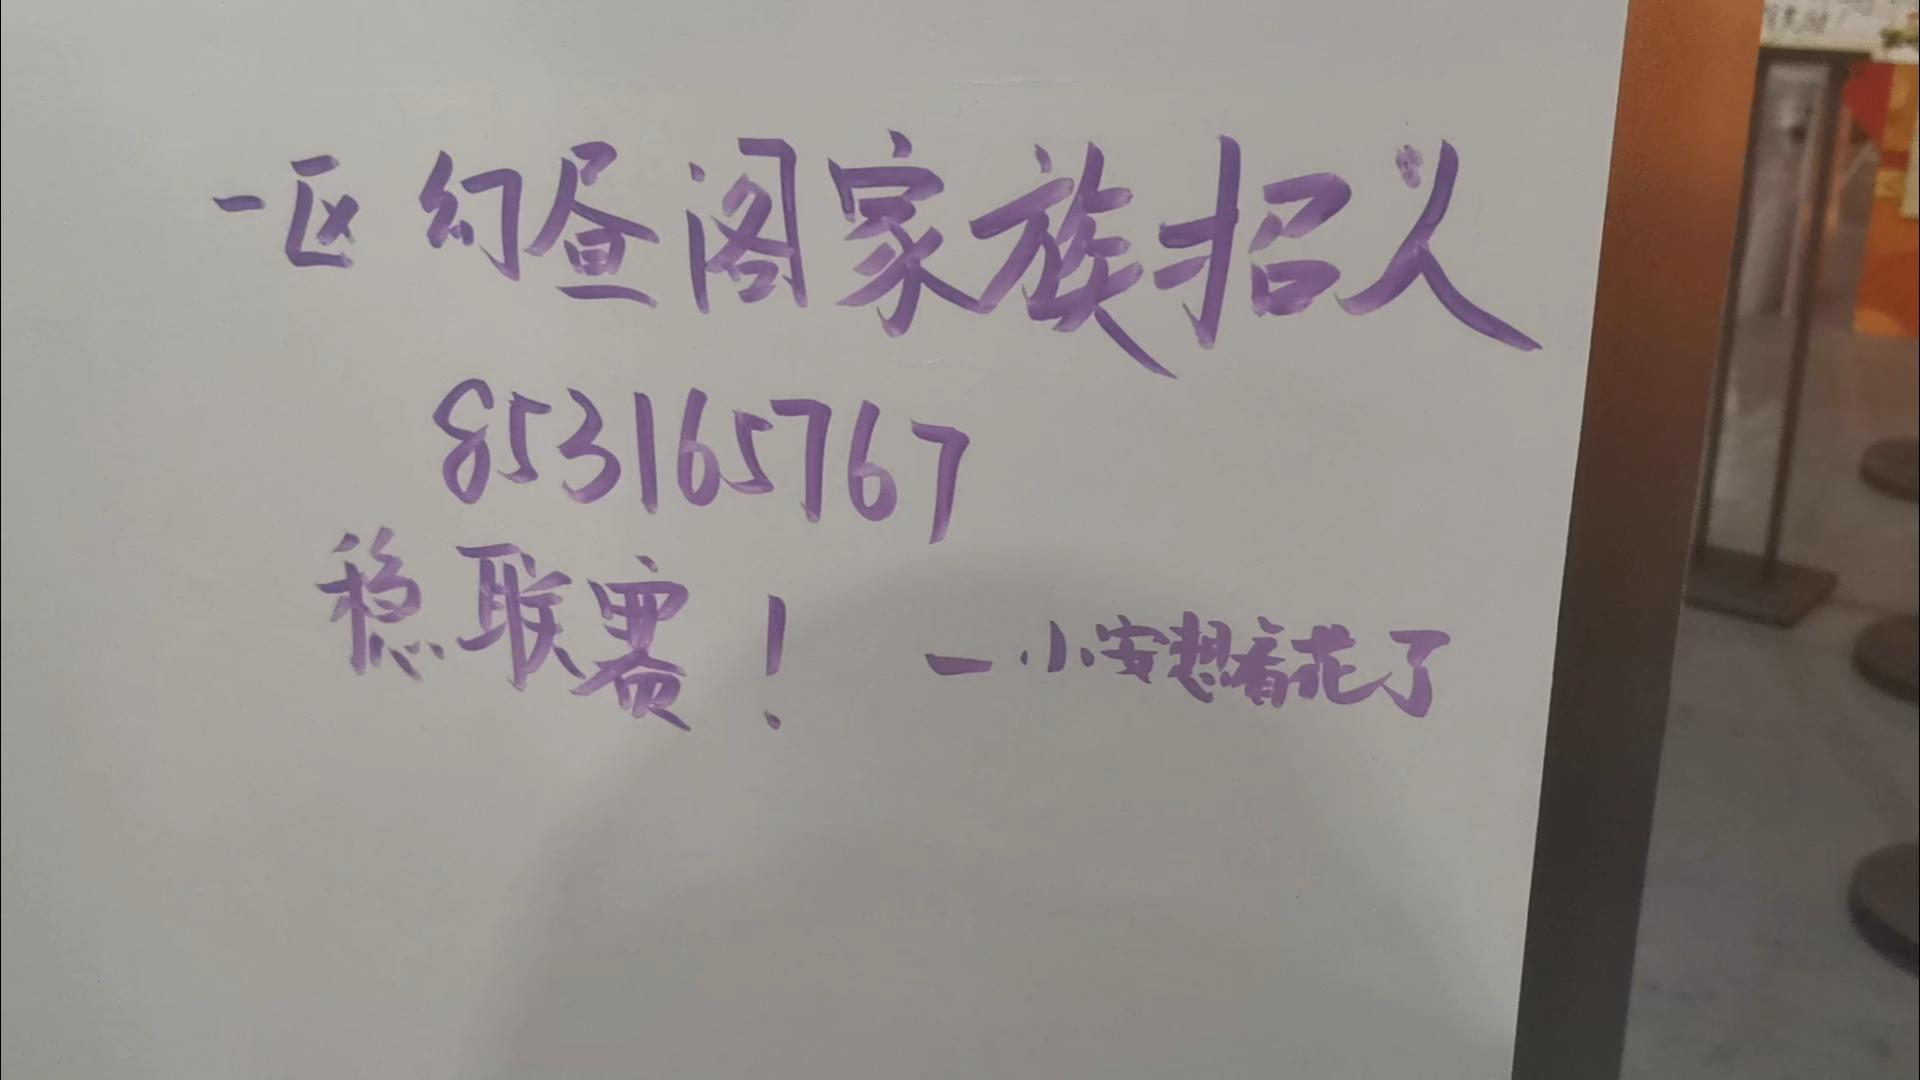 一区幻昼阁家族招人
853165767
稳联赛！
一小安想看花了